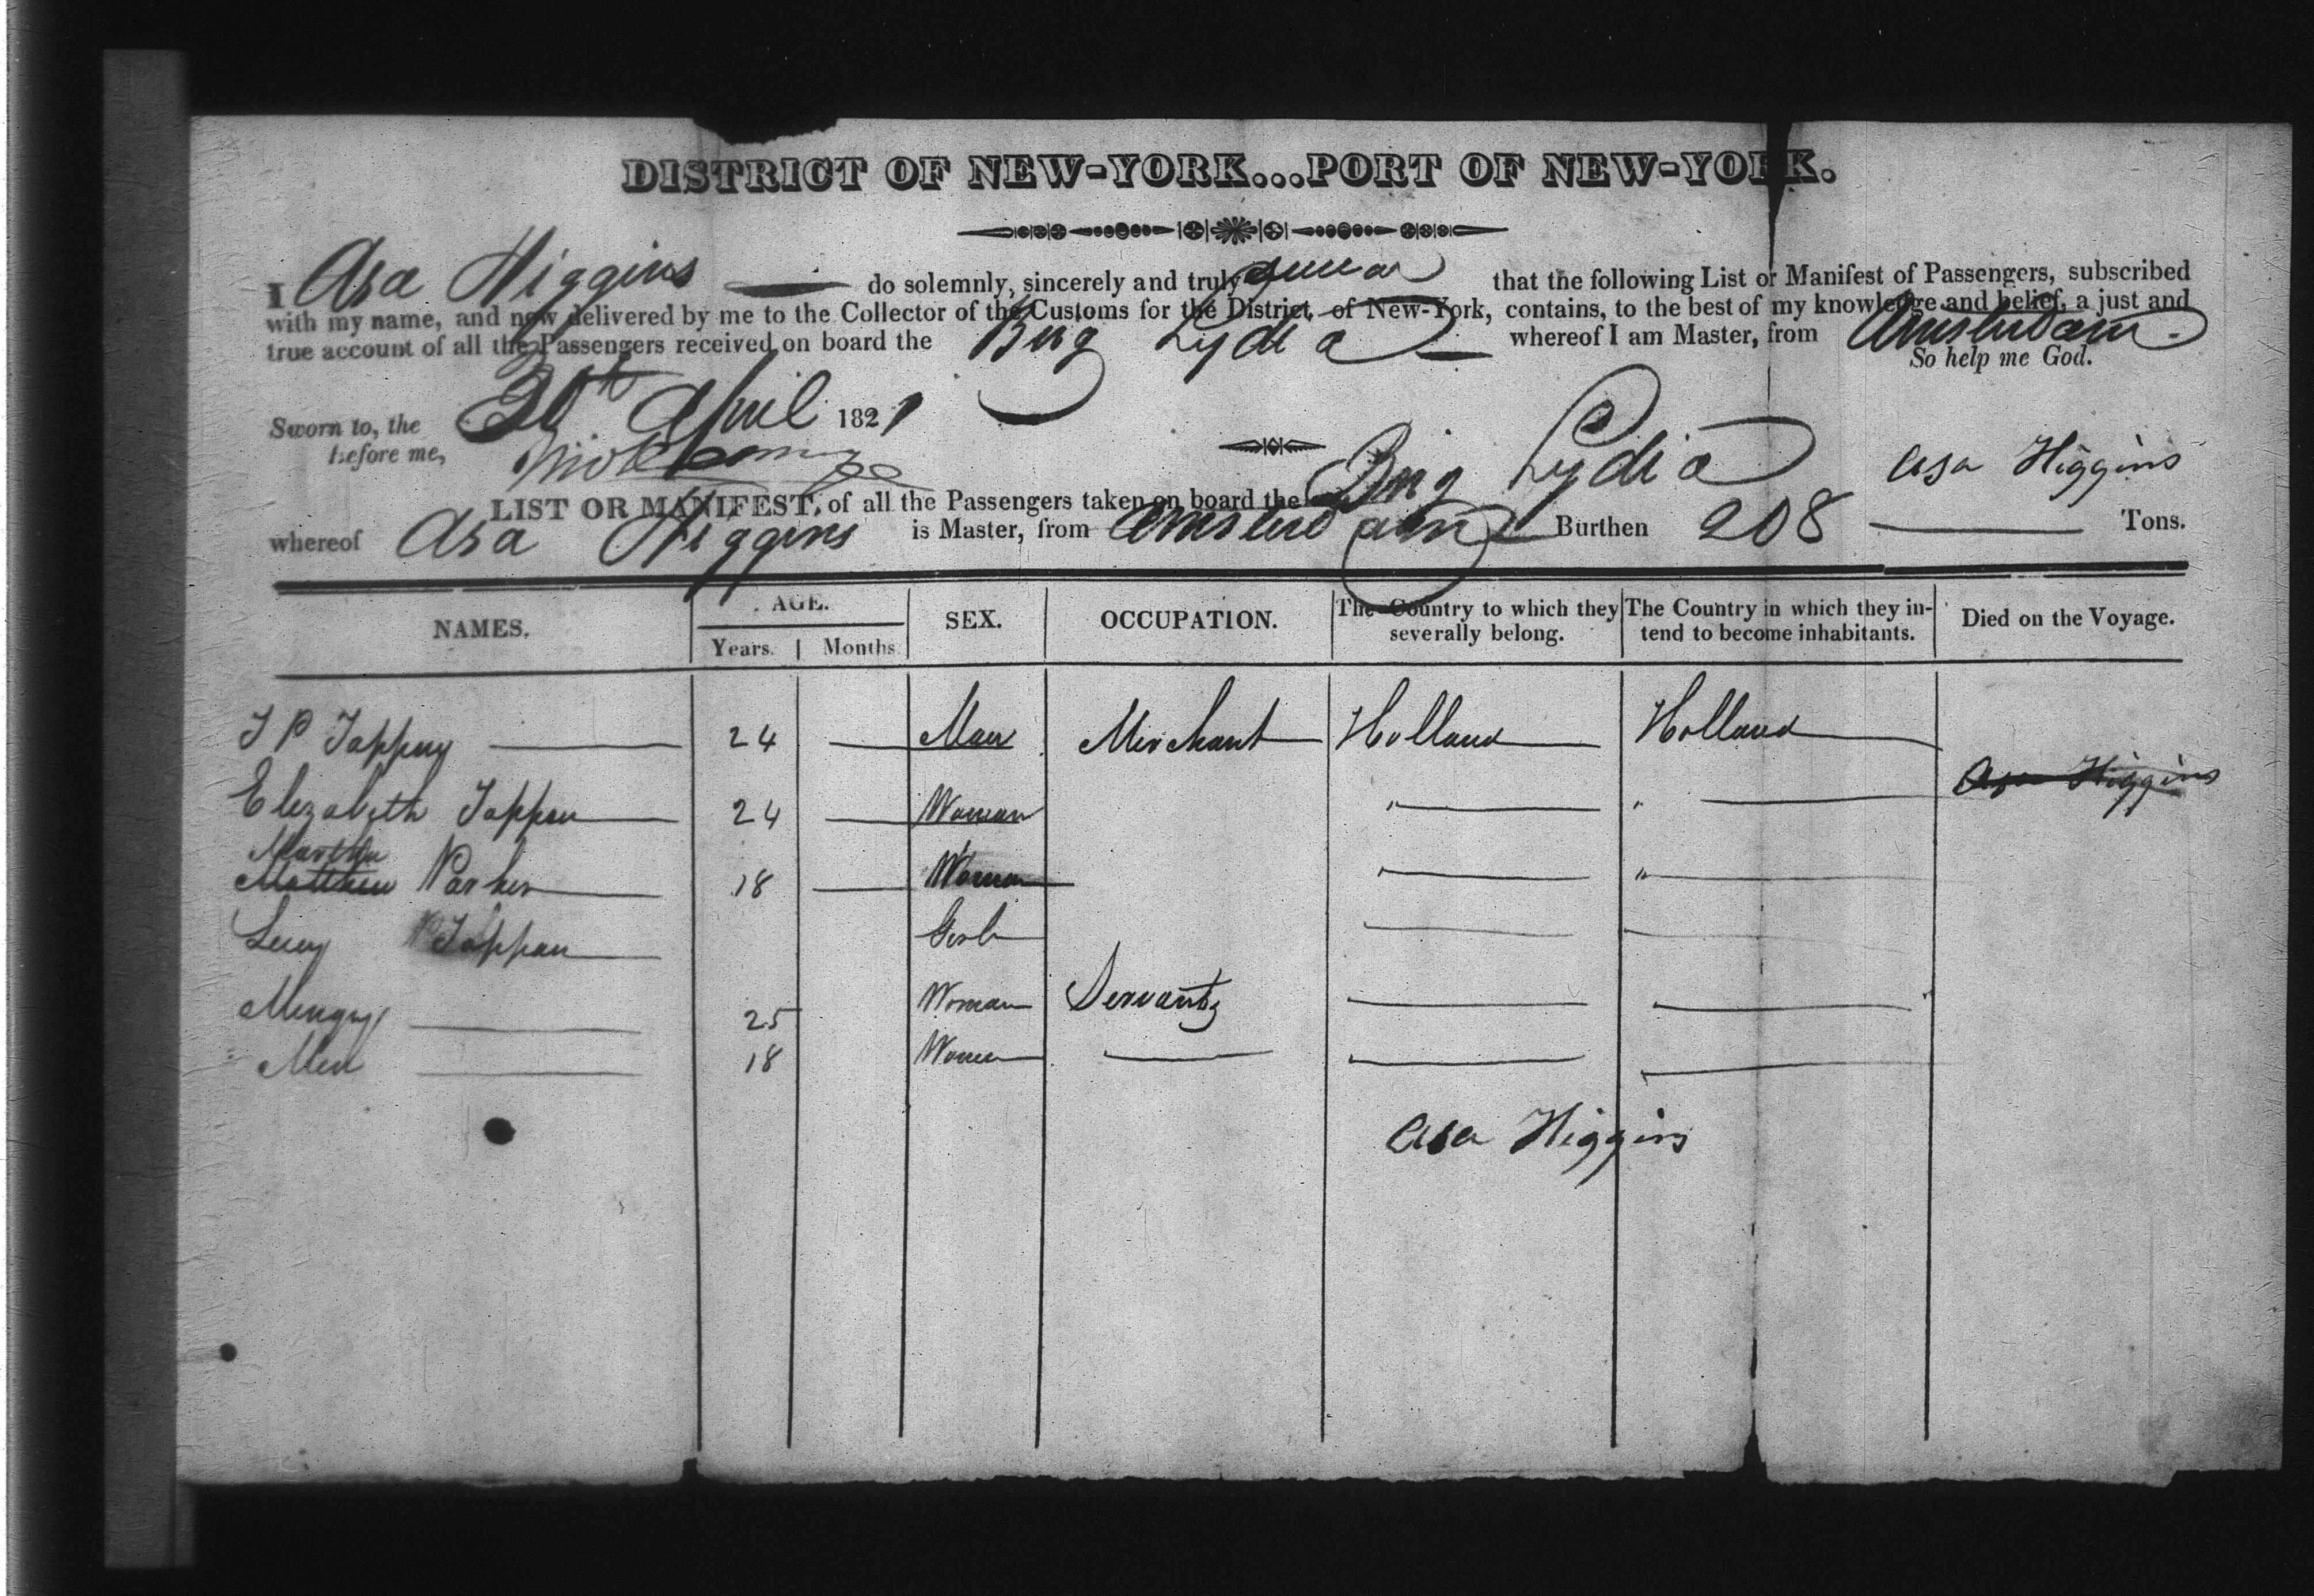 DISTRICT OF NEW-YORK...PORT OF NEW-YORK.
I Asa Higgins do solemnly, sincerely and truly swear that the following List or Manifest of Passengers, subscribed
with my name, and now delivered by me to the Collector of the Customs for the District of New-York, contains, to the best of my knowledge and belief, a just and
true account of all the Passengers received on board the Brig Lydia whereof I am Master, from Amsterdam.
So help me God.
Sworn to, the 30th April 1821
before me,
Asa Higgins
LIST OR MANIFEST, of all the Passengers taken on board the Brig Lydia
whereof Asa Higgins is Master, from Amsterdam Burthen 208 Tons.
NAMES. AGE. SEX. OCCUPATION. The Country to which they severally belong. The Country in which they intend to become inhabitants. Died on the Voyage.
Years. Months
J P Tappan 24 Man Merchant Holland Holland
Asa Higgins
Elizabeth Tappan 24 Woman " "
Martha
Matthew Parker 18 Woman " "
Lucy Tappan Girl
25 Woman Servants
18 Woman
Asa Higgins